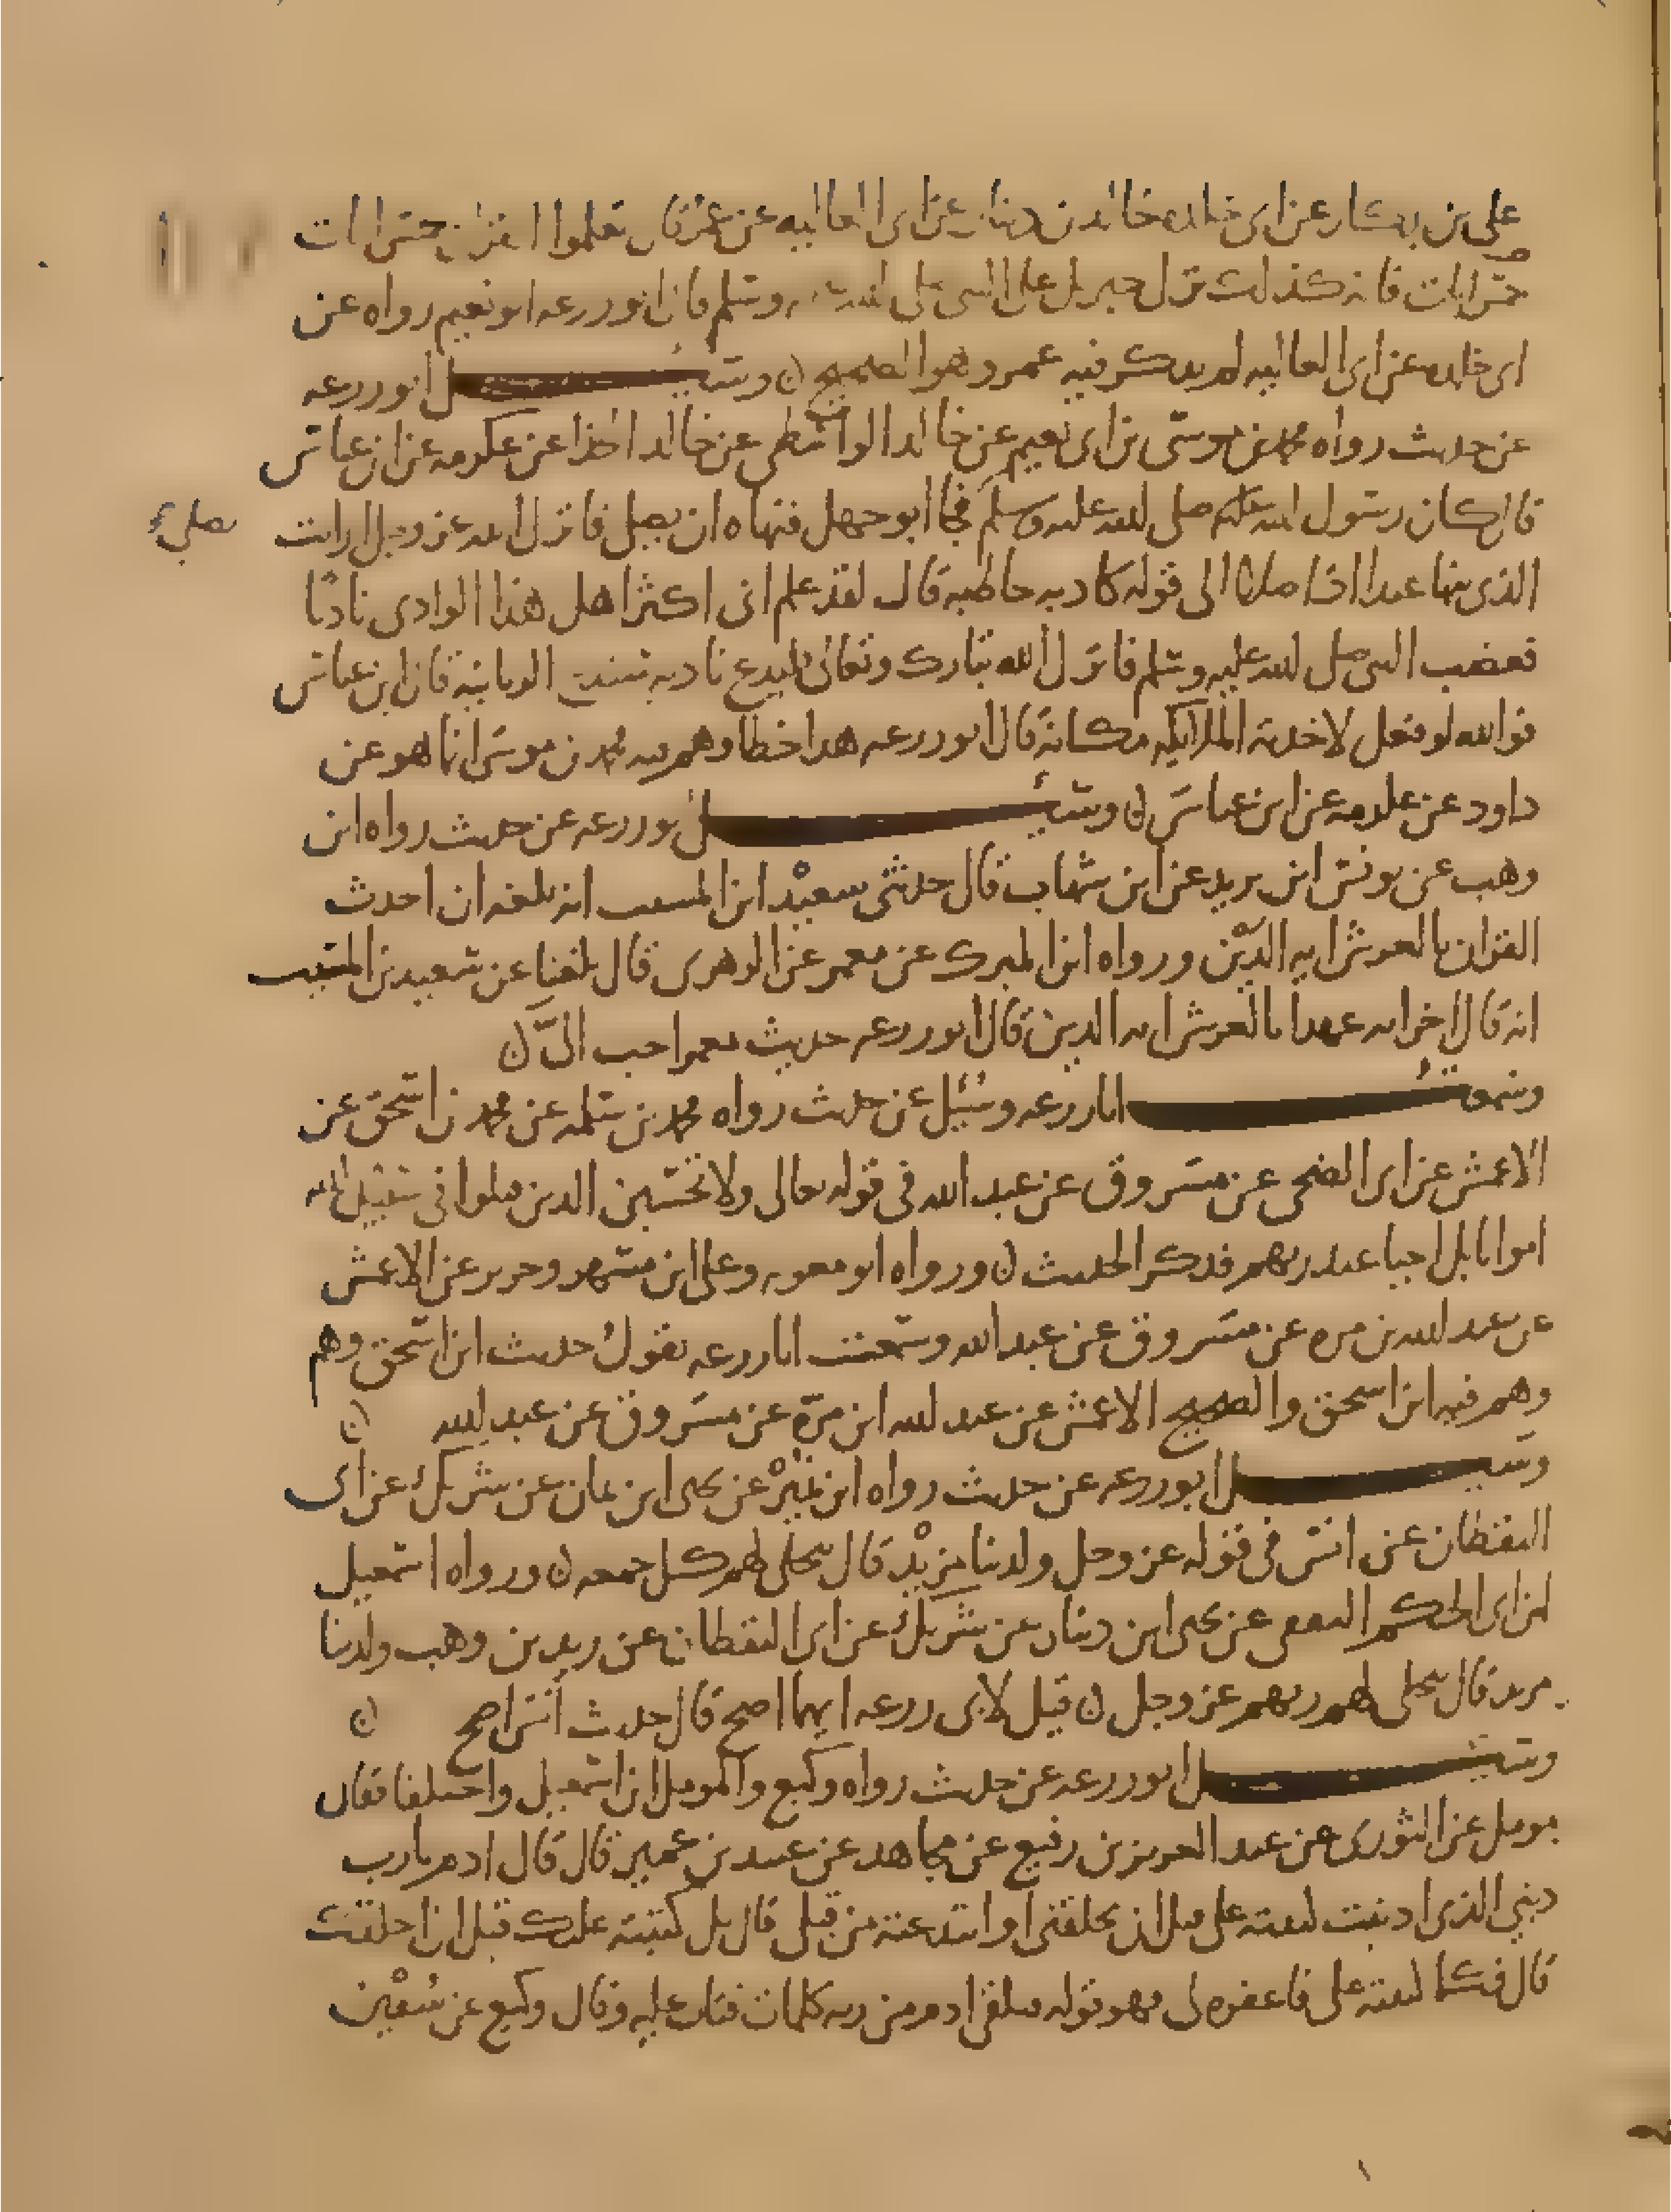 علي بن بكار عن ابي خلده خالد بن دينار عن ابي العاليه عن عمر قال تعلموا القران خمس ايات
خمس ايات فانه كذلك نزل جبريل على النبي صلى الله عليه وسلم قال ابو زرعه ابو نعيم رواه عن
ابي خلده عن ابي العاليه لم يذكر فيه عمر وهو الصحيح ن وسئل ابو زرعه
عن حديث رواه محمد بن موسى بن ابي نعيم عن خالد الواسطي عن خالد الحذا عن عكرمه عن ابن عباس
قال كان رسول الله صلى الله عليه وسلم فجا ابو جهل فنهاه ان يصلي فانزل الله عز وجل ارايت
يصلي
الذي ينها عبدا اذا صلى الى قوله كاذبه خاطيه قال لقد علم اني اكثر اهل هذا الوادي ناديا
فغضب النبي صلى الله عليه وسلم فانزل الله تبارك وتعالى فليدع ناديه سندع الزبانية قال ابن عباس
فوالله لو فعل لاخذته الملايكه مكانه قال ابو زرعه هذا خطا وهم فيه محمد بن موسى انما هو عن
داود عن عكرمه عن ابن عباس ن وسئل ابو زرعه عن حديث رواه ابن
وهب عن يونس ابن يزيد عن ابن شهاب قال حدثني سعيد ابن المسيب انه بلغه ان احدث
القران بالعرش ايه الدين ورواه ابن المبرك عن معمر عن الزهري قال بلغنا عن سعيد بن المسيب
انه قال اخر ايه عهدا بالعرش ايه الدين قال ابو زرعه حديث معمر احب الي ن
وسمعت ابا زرعه وسئل عن حديث رواه محمد بن سلمه عن محمد بن اسحق عن
الاعمش عن ابي الضحى عن مسروق عن عبد الله في قوله تعالى ولا تحسبن الذين قتلوا في سبيل الله
امواتا بل احيا عند ربهم فذكر الحديث ن ورواه ابو معويه وعلي ابن مسهر وجرير عن الاعمش
عن عبد الله بن مره عن مسروق عن عبد الله وسمعت ابا زرعه يقول حديث ابن اسحق وهم
وهم فيه ابن اسحق والصحيح الاعمش عن عبد الله ابن مره عن مسروق عن عبد الله ن
وسئل ابو زرعه عن حديث رواه ابن نمير عن يحيى ابن يمان عن شريك عن ابي
اليقظان عن انس في قوله عز وجل ولدينا مزيد قال يتجلى لهم كل جمعه ن ورواه اسمعيل
ابن ابي الحكم الثقفي عن يحيى ابن دينار عن شريك عن ابي اليقظان عن زيد بن وهب ولدينا
مزيد قال يتجلى لهم ربهم عز وجل ن قيل لابي زرعه ايهما اصح قال حديث انس اصح ن
وسئل ابو زرعه عن حديث رواه وكيع والمومل ابن اسمعيل واختلفا فقال
مومل عن الثوري عن عبد العزيز بن رفيع عن مجاهد عن عبيد بن عمير قال قال ادم يا رب
ذنبي الذي اذنبت كتبته علي قبل ان تخلقني او ابتدعته من قبلي قال بل كتبته عليك قبل ان اخلقك
قال فكما كتبته علي فاغفره لي فهو قوله فتلقى ادم من ربه كلمات فتاب عليه وقال وكيع عن سفين